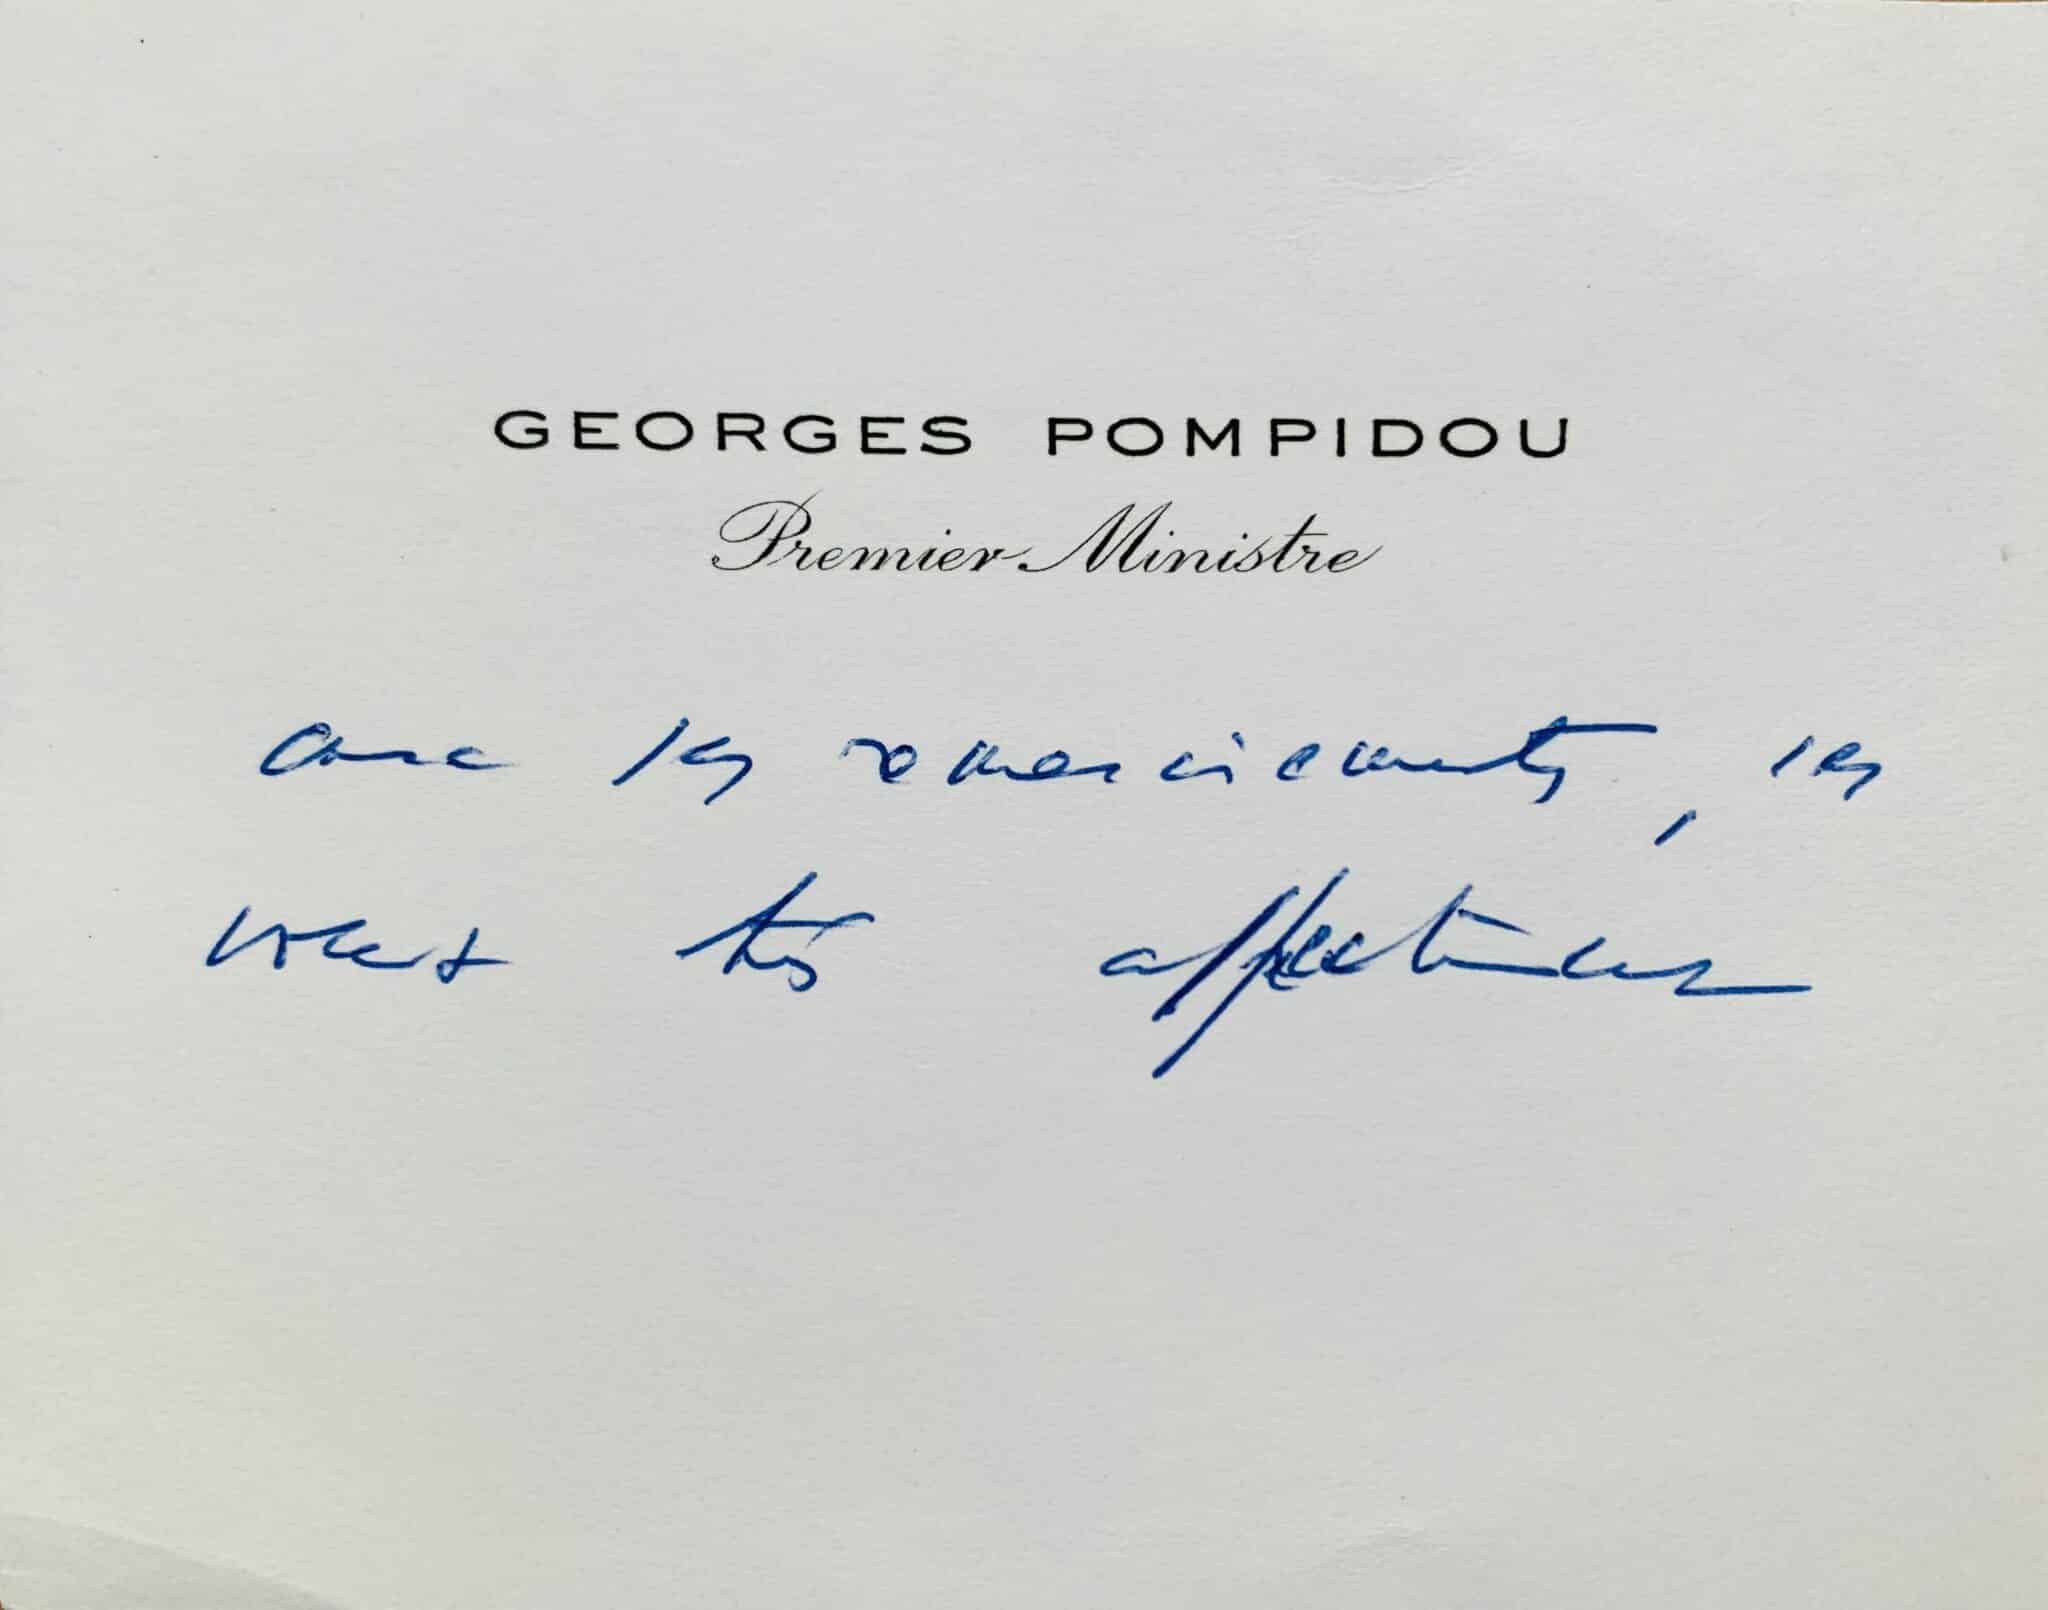 GEORGES POMPIDOU
Premier Ministre
avec les remerciements, les
vœux très affectueux